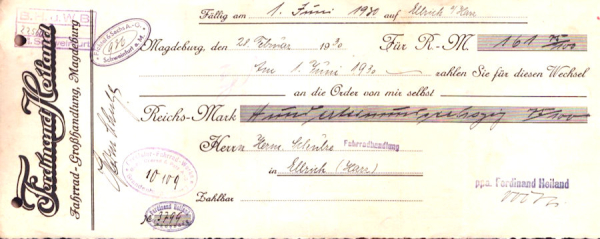 Ferdinand Heiland
Fahrrad-Großhandlung, Magdeburg
Fällig am 1. Juni 1930 auf Ellrich a/Harz
Magdeburg, den 21. Februar 1930 Für R.-M. 161
Am 1. Juni 1930 zahlen Sie für diesen Wechsel
an die Order von mir selbst
Reichs-Mark
Herrn Herm. Schulze Fahrradhandlung
in Ellrich (Harz)
Zahlbar
ppa. Ferdinand Heiland
Schweinfurt a.M.
10 189
Ferdinand Heiland
No 3796